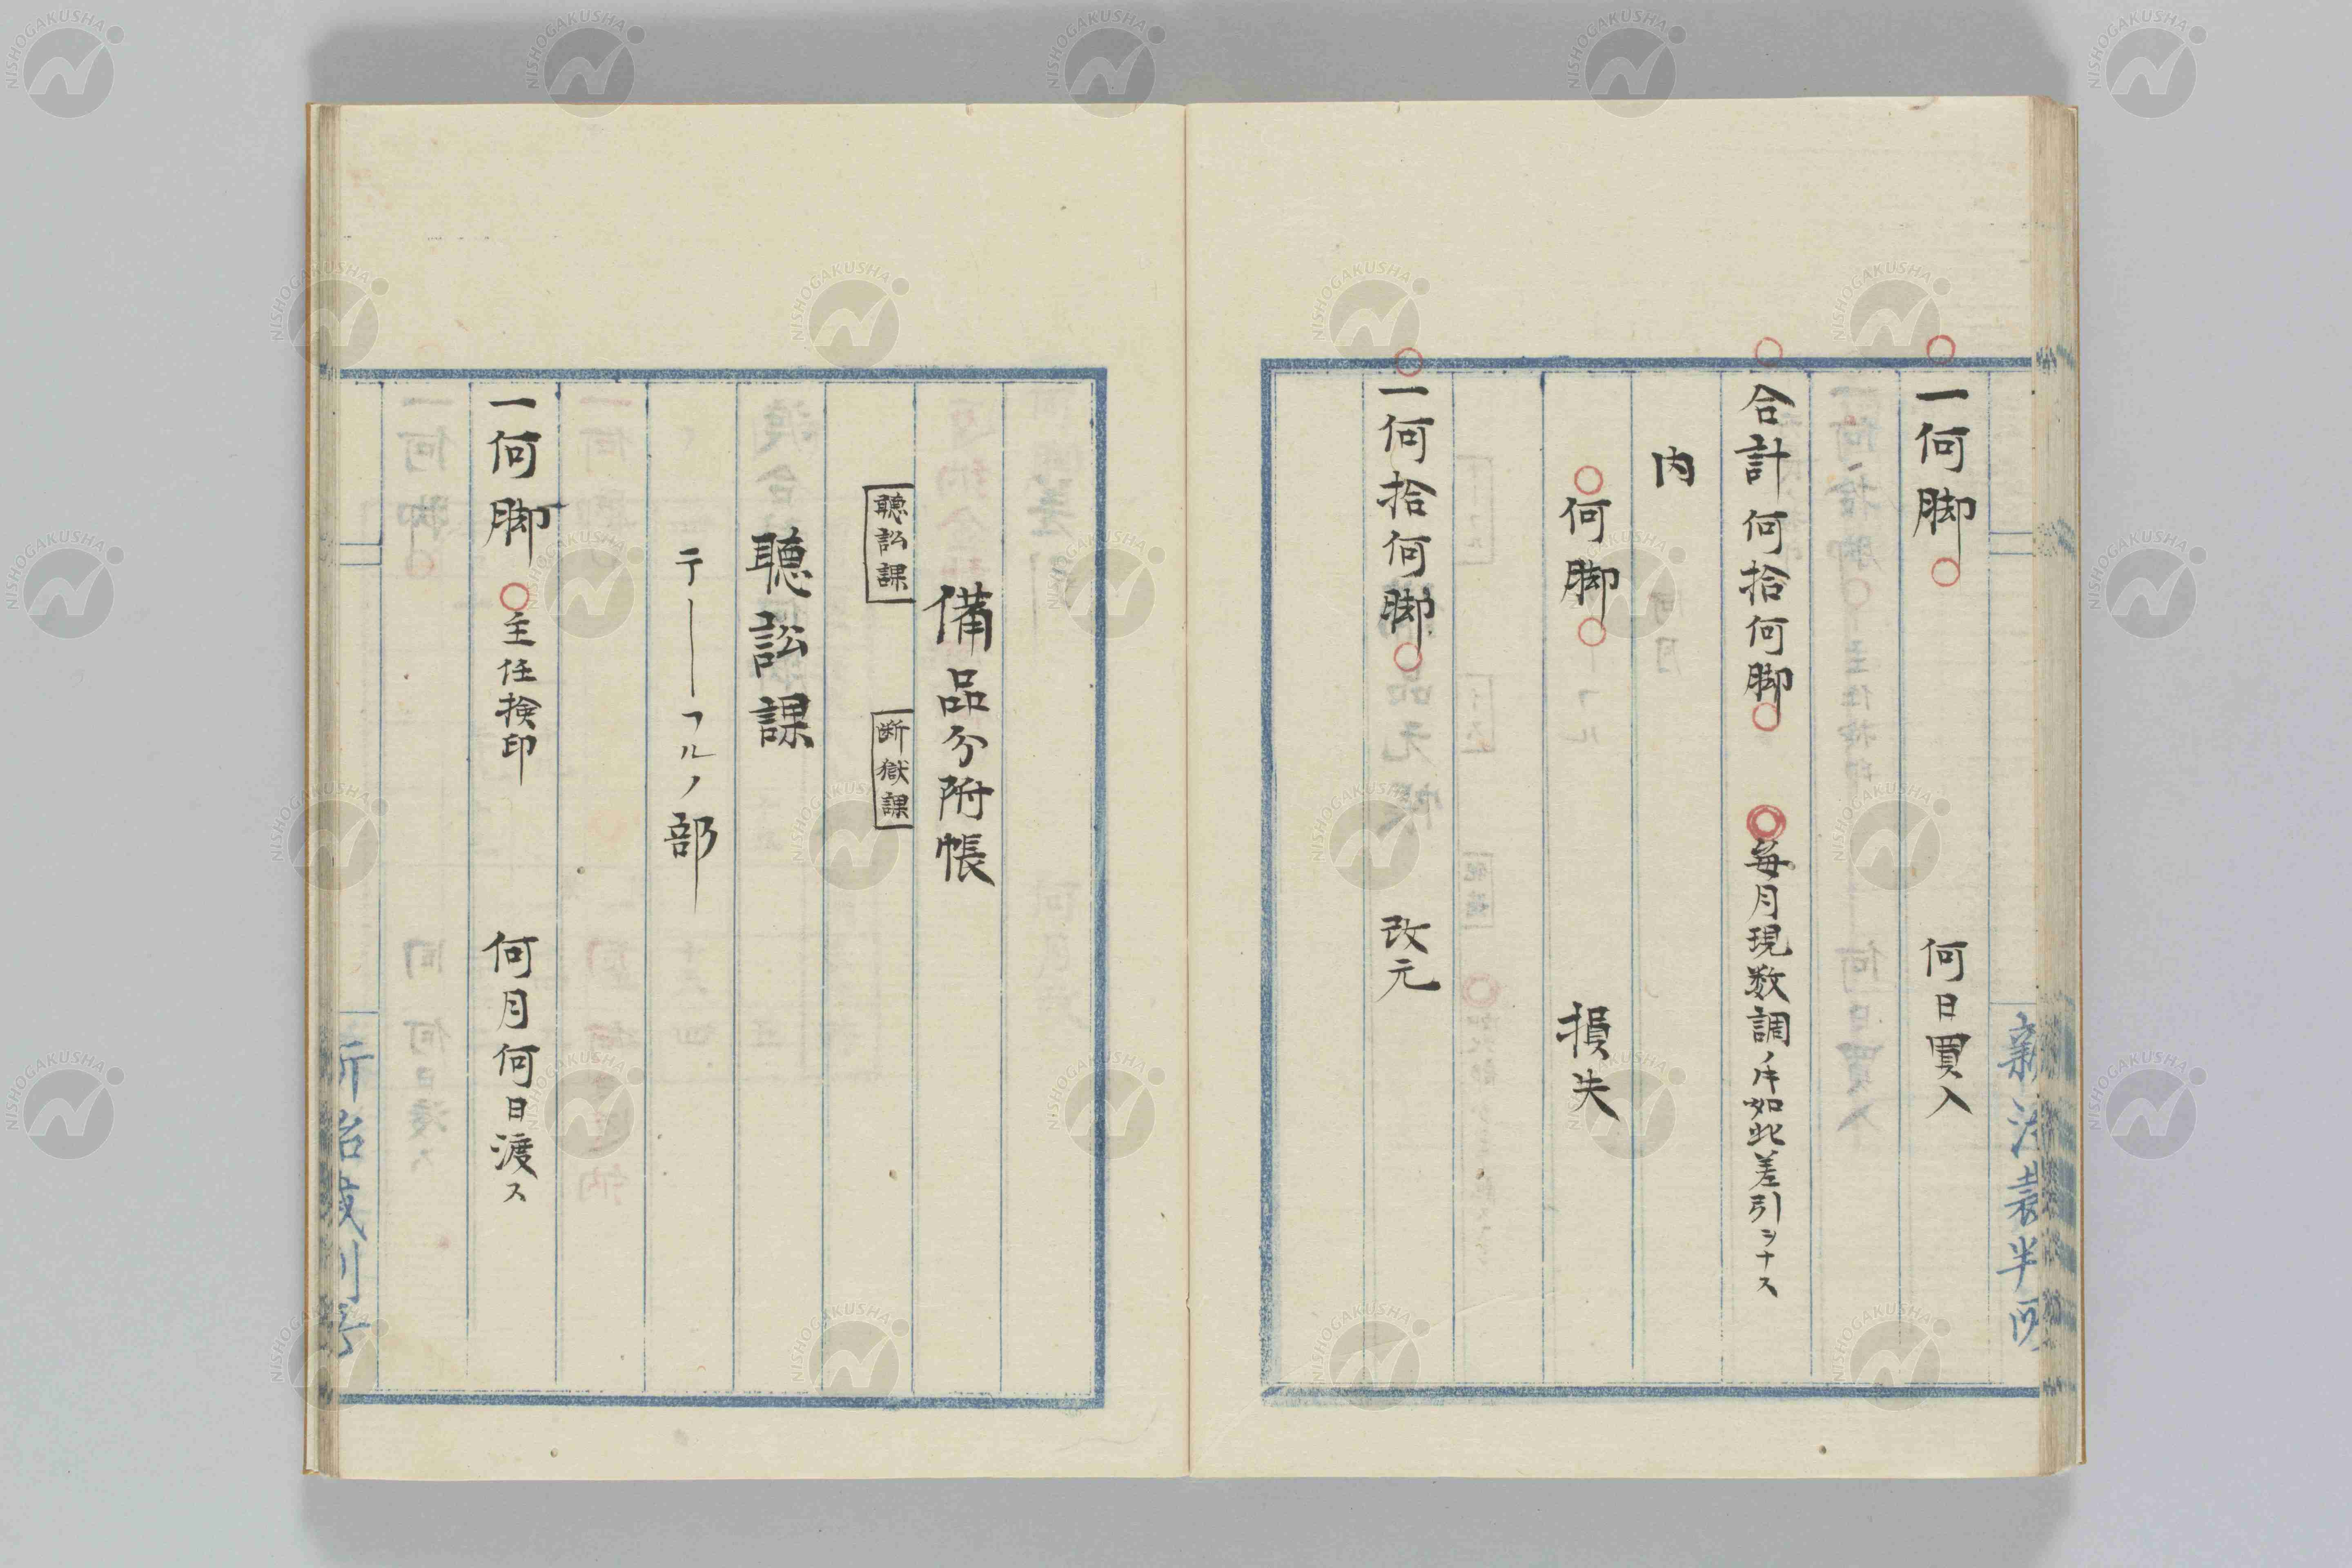 一何脚　何日買入
合計何拾何脚　毎月現数調ノ末如此差引ヲナス
内
何脚　損失
一何拾何脚　改元
備品分附帳
聴訟課　断獄課
聴訟課
テーフルノ部
一何脚　主任検印　何月何日渡ス
NISHOGAKUSHA